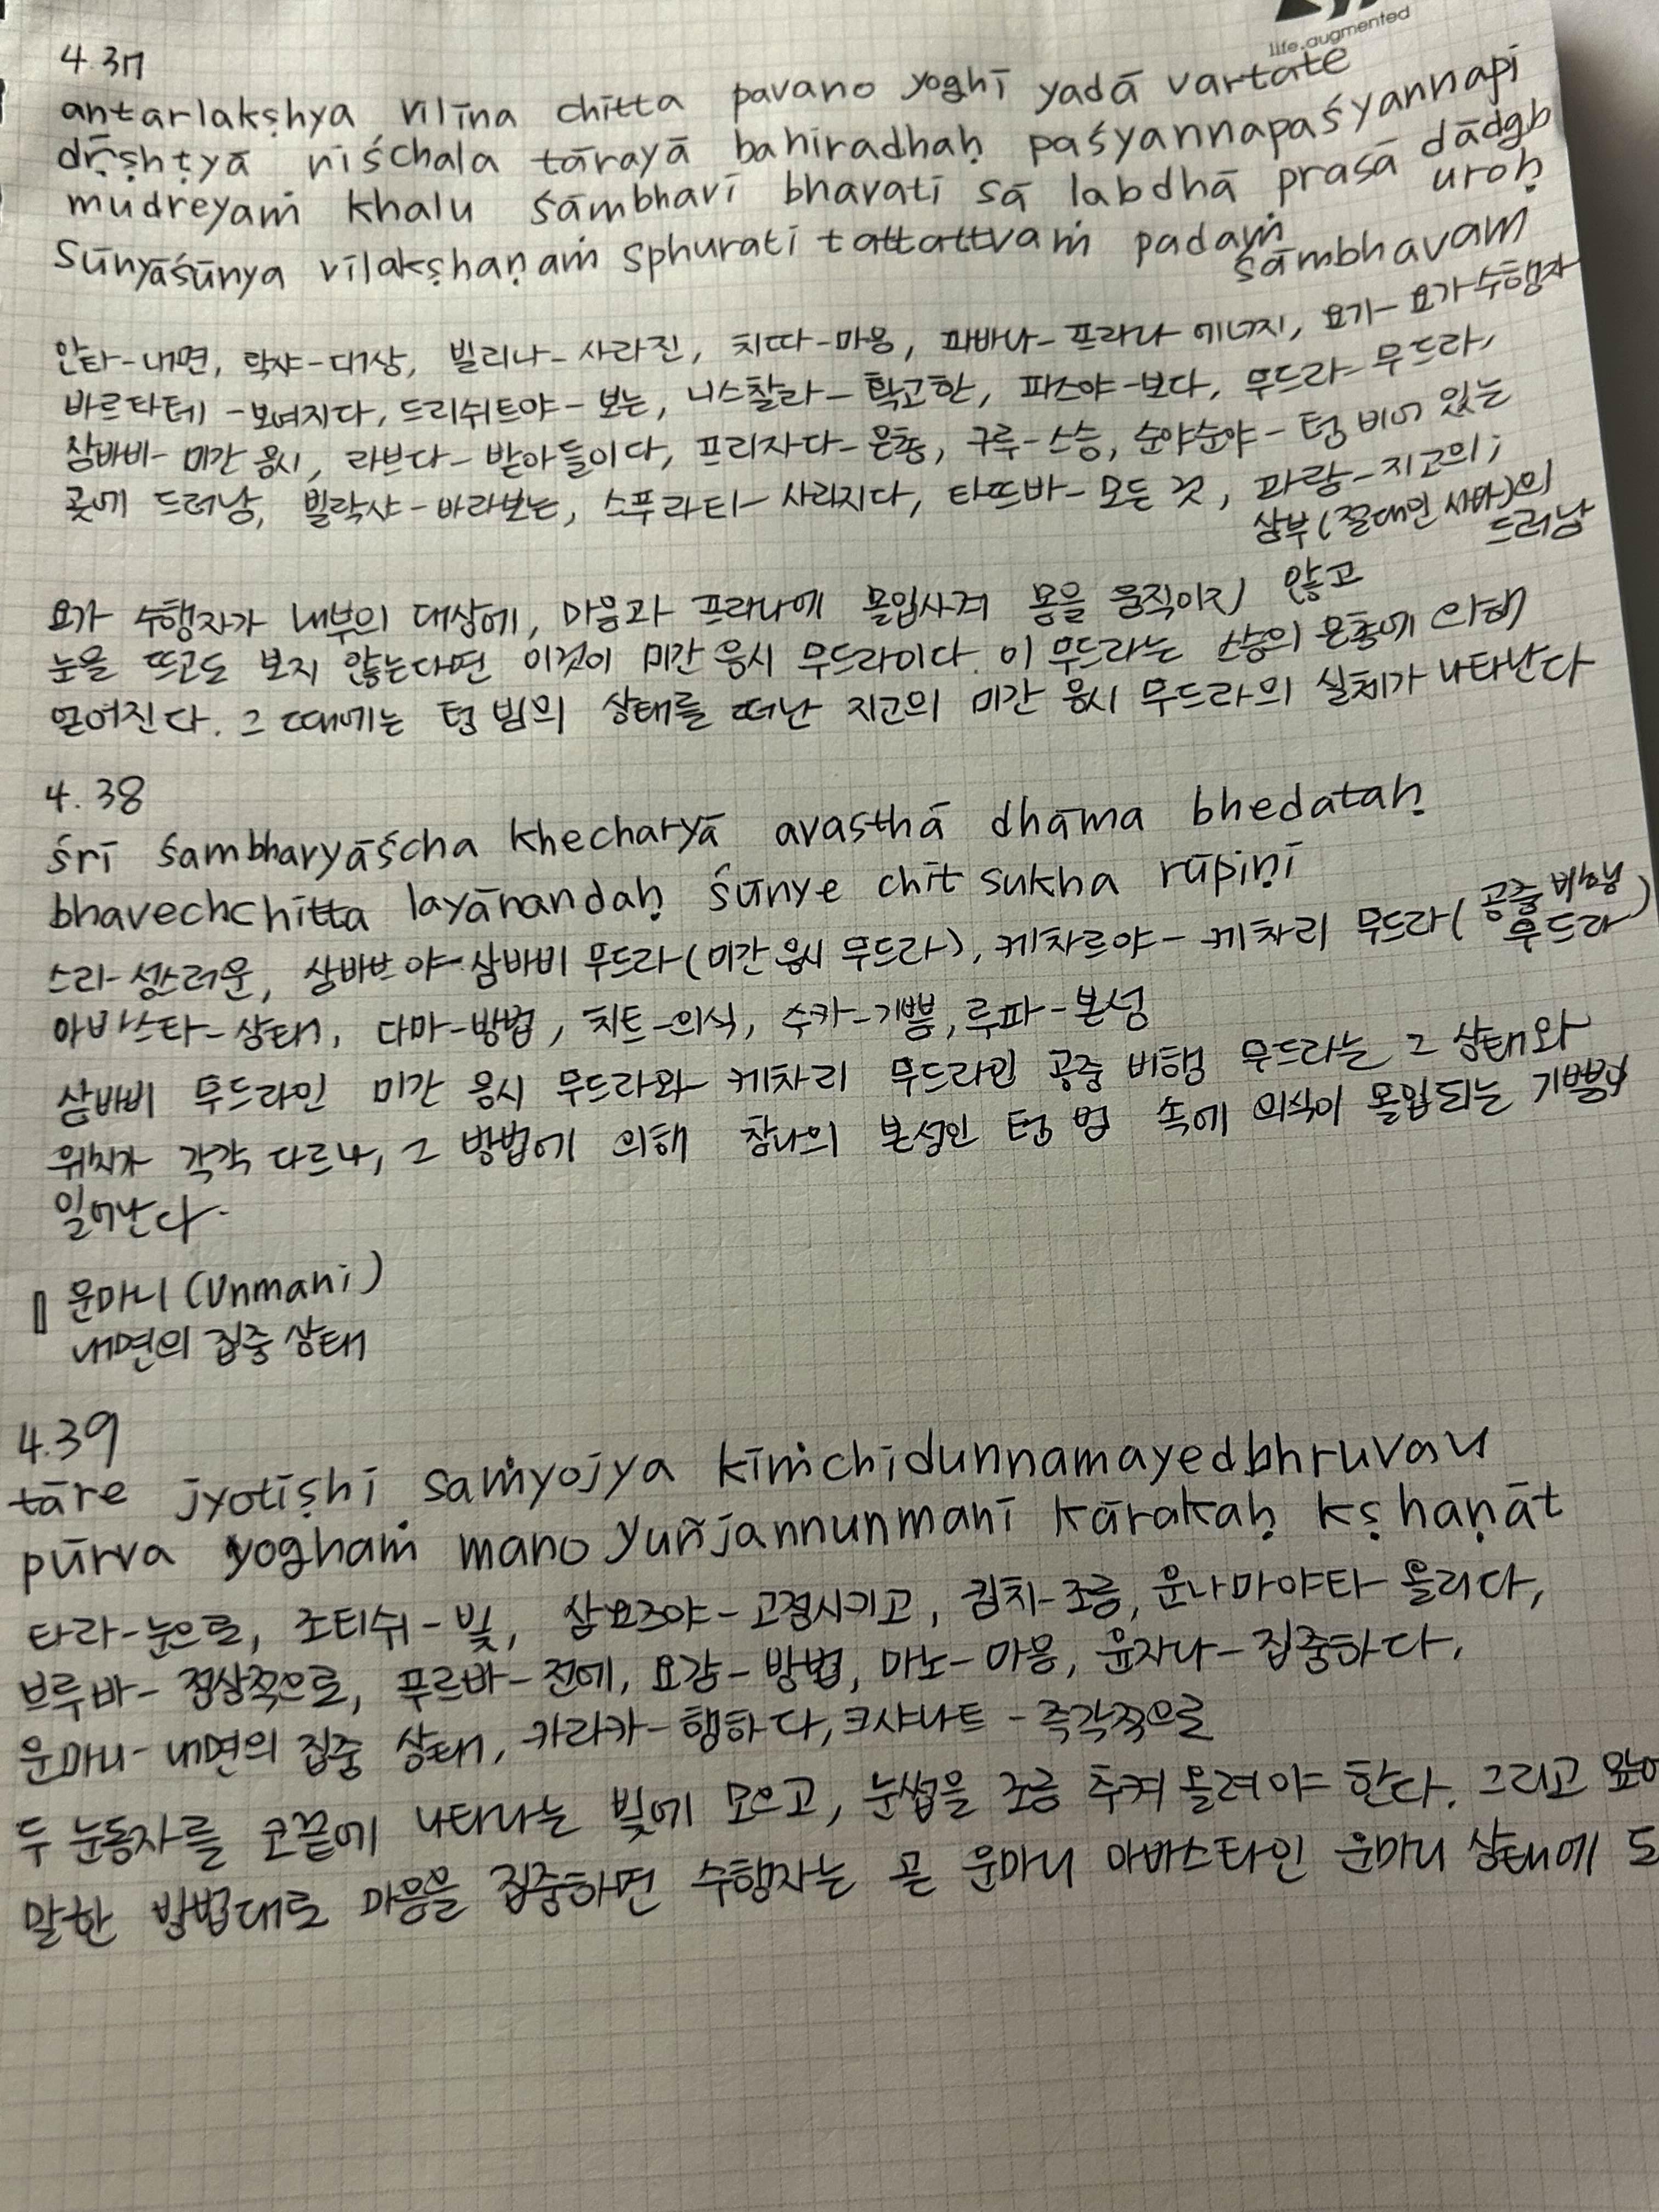 life.augmented
4.37
antarlakṣhya vilīna chitta pavano yoghī yadā vartate
dṝṣhṭyā niśchala tārayā bahiradhaḥ paśyannapaśyannapi
mudreyaṁ khalu śāmbhavī bhavati sā labdhā prasā dādgh
uroḥ
Sūnyāśūnya vilakṣhaṇaṁ sphurati tattattvaṁ padaṁ
śāmbhavam
안타-내면, 락샤-대상, 빌리나-사라진, 치따-마음, 파바나-프라나 에너지, 요기-요가수행자
바르타테-보여지다, 드리쉬트야-보는, 니스찰라-확고한, 파즈야-보다, 무드라-무드라,
삼바비-미간 응시, 라브다-받아들이다, 프리자다-은총, 구루-스승, 순야순야-텅 비어 있는
곳에 드러남, 빌락샤-바라보는, 스푸라티-사라지다, 타뜨바-모든 것, 파람-지고의,
삼부(절대인 시바)의
드러남
요가 수행자가 내부의 대상에, 마음과 프라나에 몰입사켜 몸을 움직이지 않고
눈을 뜨고도 보지 않는다면 이것이 미간 응시 무드라이다. 이 무드라는 스승의 은총에 의해
얻어진다. 그 때에는 텅 빔의 상태를 떠난 지고의 미간 응시 무드라의 실체가 나타난다
4.38
śrī śambharyāścha khecharyā avasthā dhāma bhedataḥ
bhavechchitta layānandaḥ śūnye chit sukha rūpiṇī
스리-성스러운, 삼바브야-삼바비 무드라(미간 응시 무드라), 케차르야-케차리 무드라(공중 비행
무드라)
아바스타-상태, 다마-방법, 치트-의식, 수카-기쁨, 루파-본성
삼바비 무드라인 미간 응시 무드라와 케차리 무드라인 공중 비행 무드라는 그 상태와
위치가 각각 다르나, 그 방법에 의해 참나의 본성인 텅 빔 속에 의식이 몰입되는 기쁨이
일어난다.
운마니 (Unmani)
내면의 집중 상태
4.39
tāre jyotiṣhi saṁyojya kiṁchidunnamayedbhruvau
pūrva yoghaṁ mano yuñjannunmanī kārakaḥ kṣhaṇāt
타라-눈으로, 조티쉬-빛, 삼요즈야-고정시키고, 킴치-조금, 운나마야타-올리다,
브루바-정상쪽으로, 푸르바-전에, 요감-방법, 마노-마음, 윤자나-집중하다,
운마니-내면의 집중 상태, 카라카-행하다, 크샤나트-즉각적으로
두 눈동자를 코끝에 나타나는 빛에 모으고, 눈썹을 조금 추켜 올려야 한다. 그리고 앞에
말한 방법대로 마음을 집중하면 수행자는 곧 운마니 아바스타인 운마니 상태에 도